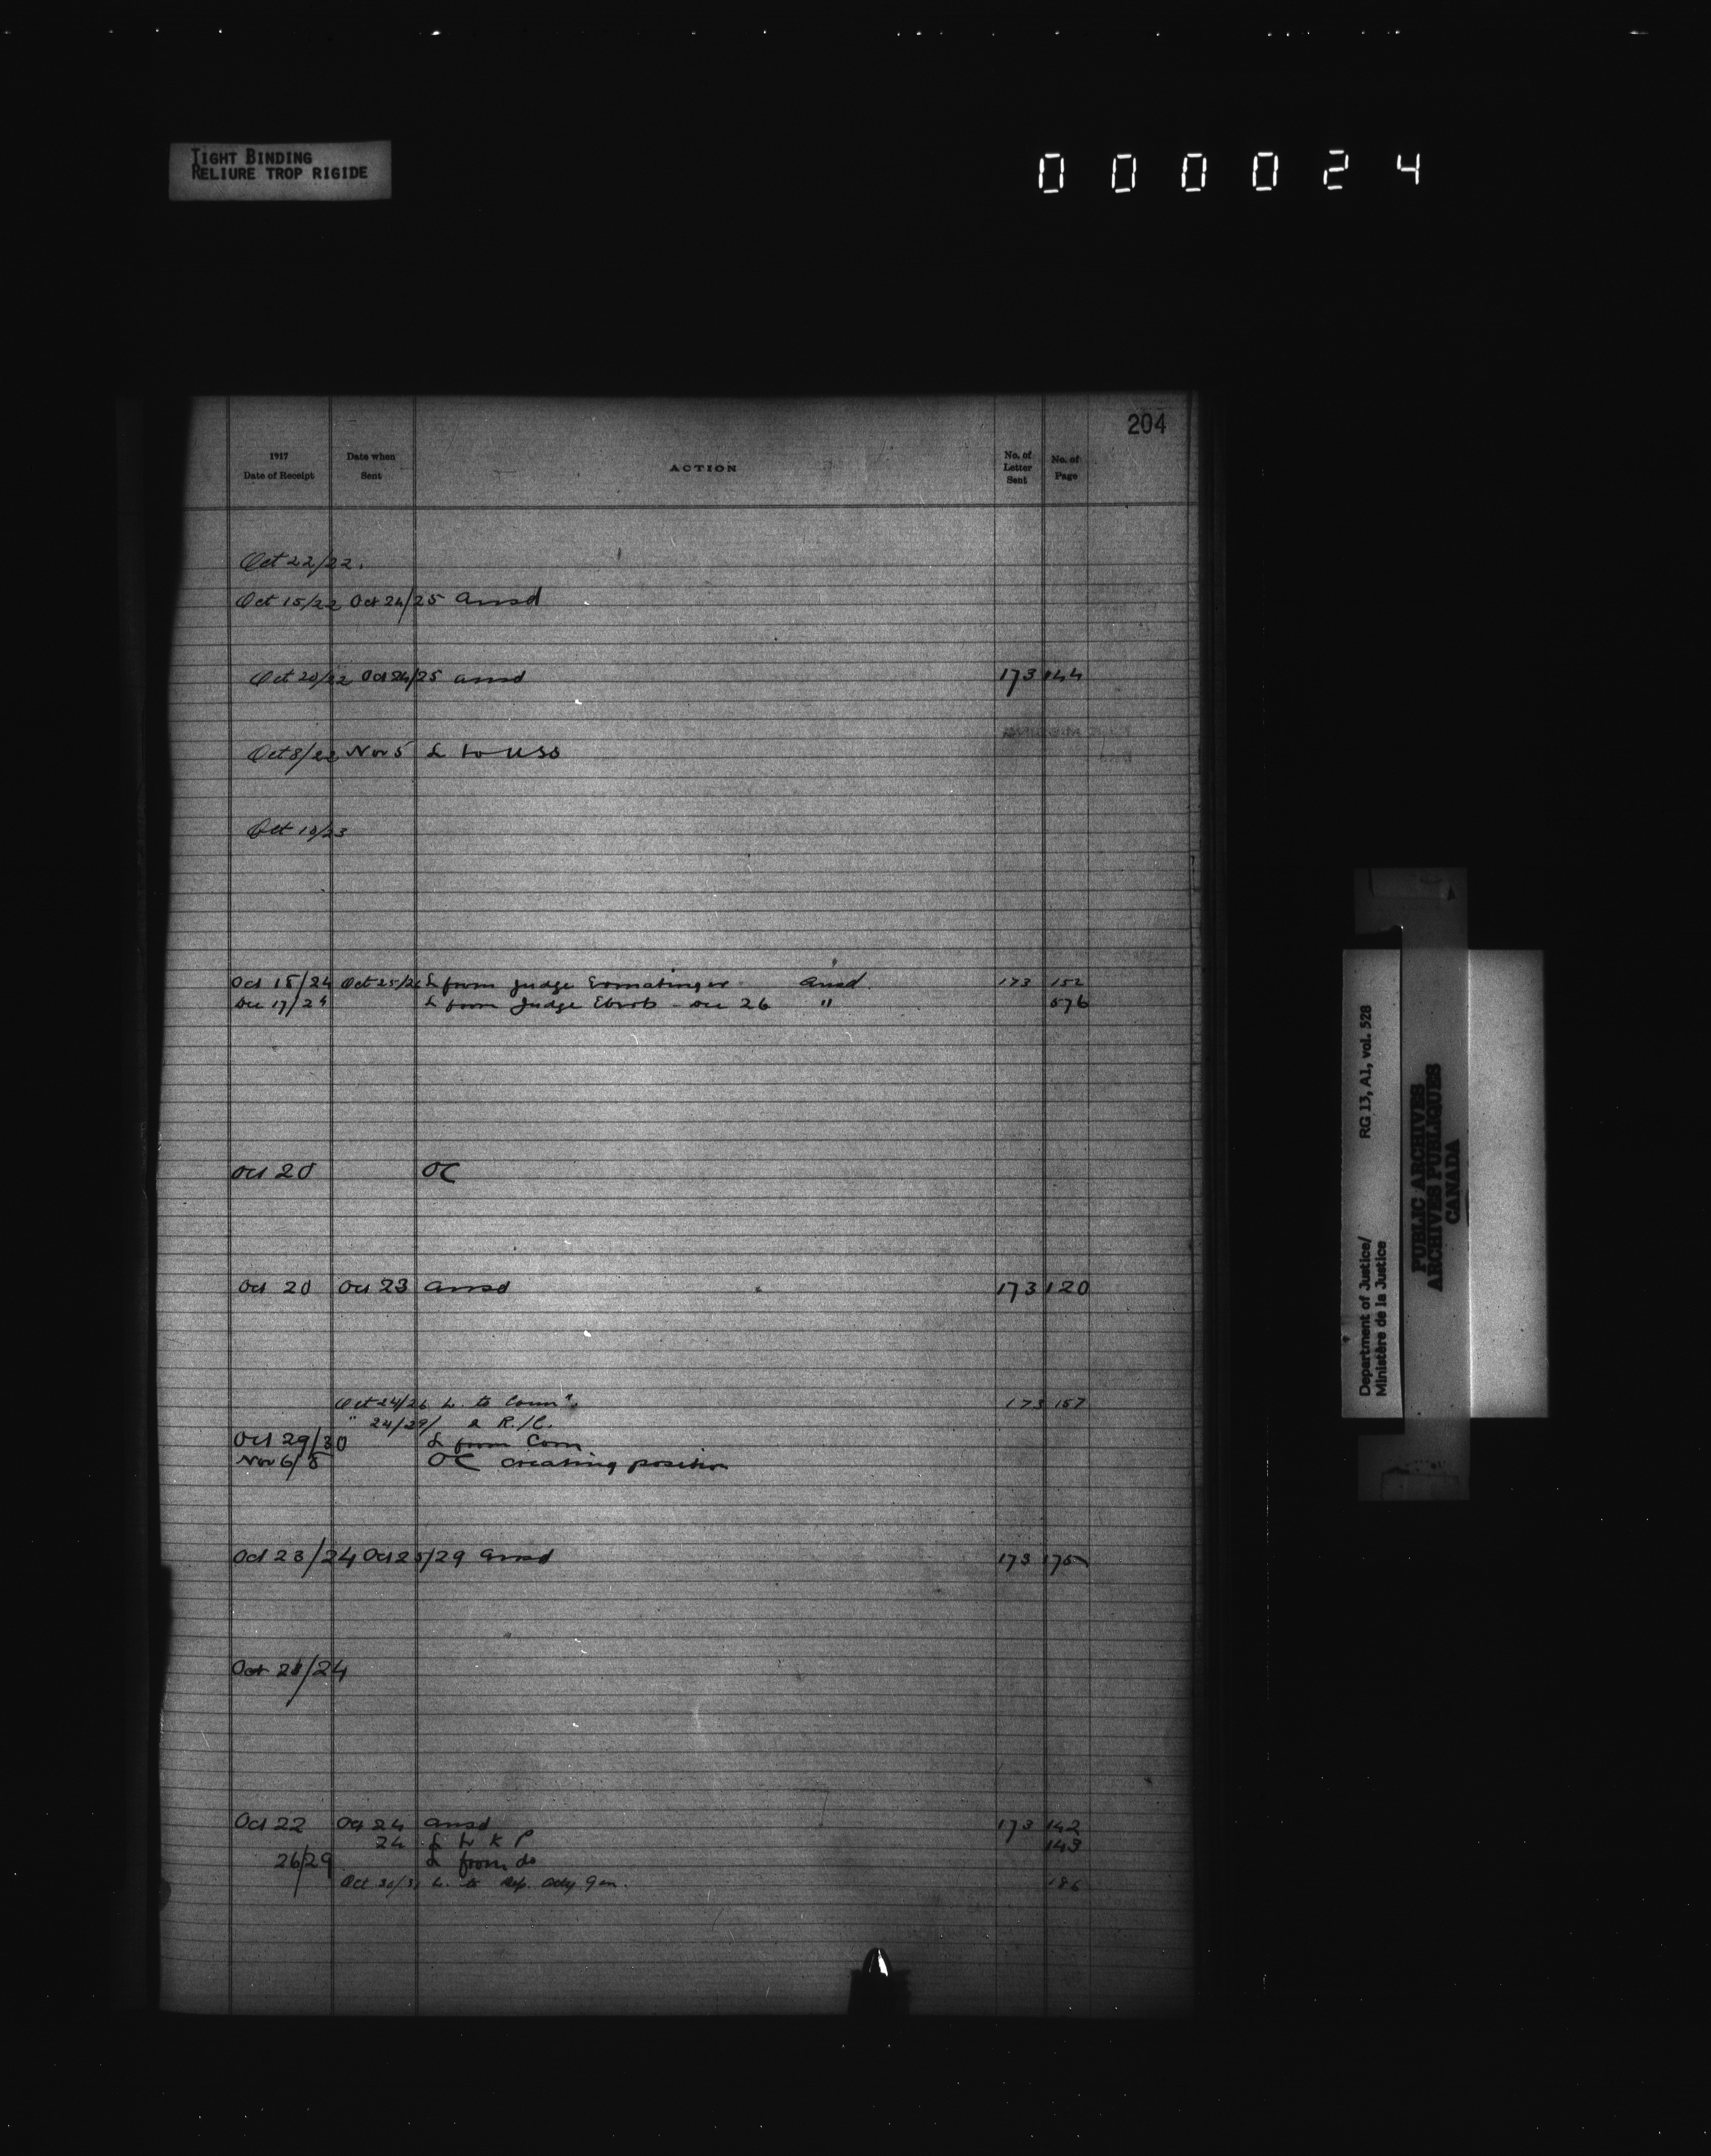 TIGHT BINDING
RELIURE TROP RIGIDE
000024
204
1917
Date of Receipt
Date when
Sent
ACTION
No. of
Letter
Sent
No. of
Page
Oct 22/22.
Oct 15/22 Oct 24/25 ansd
Oct 20/22 Oct 24/25 ansd 173 144
Oct 8/22 Nov 5 L to USS
Oct 10/23
Oct 18/24 Oct 25/26 L from Judge Ermatinger ansd. 173 152
Dec 17/24 L from Judge - Dec 26 " 576
Oct 20 OC
Oct 20 Oct 23 ansd 173 120
Oct 24/26 L. to Comn". 173 157
" 24/29/ a R./C.
Oct 29/30 L from Com
Nov 6/8 OC creating position
Oct 23/24 Oct 25/29 ansd 173 175
Oct 21/24
Oct 22 Oct 24 ansd 173 142
24 L to K P 143
26/29 L from do
Oct 30/31 L. to Dep. Atty Gen. 186
Department of Justice/ RG 13, A1, vol. 528
Ministère de la Justice
PUBLIC ARCHIVES
ARCHIVES PUBLIQUES
CANADA